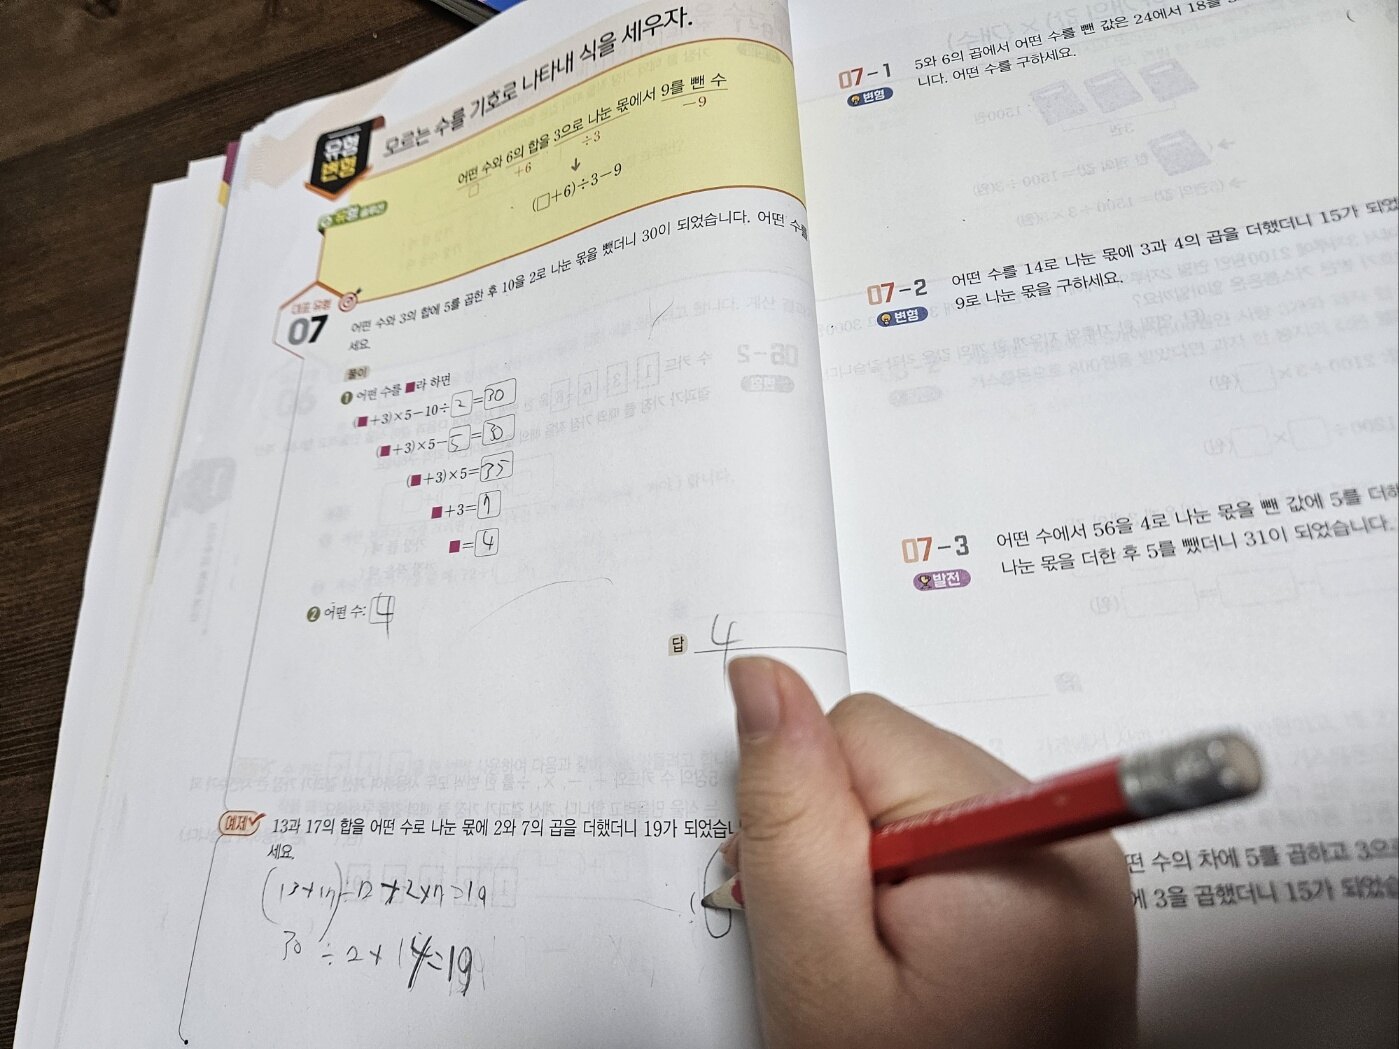 유형
변형
모르는 수를 기호로 나타내 식을 세우자.
어떤 수와 6의 합을 3으로 나눈 몫에서 9를 뺀 수
□ +6 ÷3 −9
(□+6)÷3−9
대표 유형
07
어떤 수와 3의 합에 5를 곱한 후 10을 2로 나눈 몫을 뺐더니 30이 되었습니다. 어떤 수를
세요.
풀이
❶ 어떤 수를 ■라 하면
(■+3)×5−10÷2=30
(■+3)×5−5=30
(■+3)×5=35
■+3=7
■=4
❷ 어떤 수: 4
답 4
예제
13과 17의 합을 어떤 수로 나눈 몫에 2와 7의 곱을 더했더니 19가 되었습니
세요.
30 ÷ 2 + 14=19
07-1
변형
5와 6의 곱에서 어떤 수를 뺀 값은 24에서 18을
니다. 어떤 수를 구하세요.
07-2
변형
어떤 수를 14로 나눈 몫에 3과 4의 곱을 더했더니 15가 되었
9로 나눈 몫을 구하세요.
07-3
발전
어떤 수에서 56을 4로 나눈 몫을 뺀 값에 5를 더
나눈 몫을 더한 후 5를 뺐더니 31이 되었습니다.
떤 수의 차에 5를 곱하고 3으
에 3을 곱했더니 15가 되었